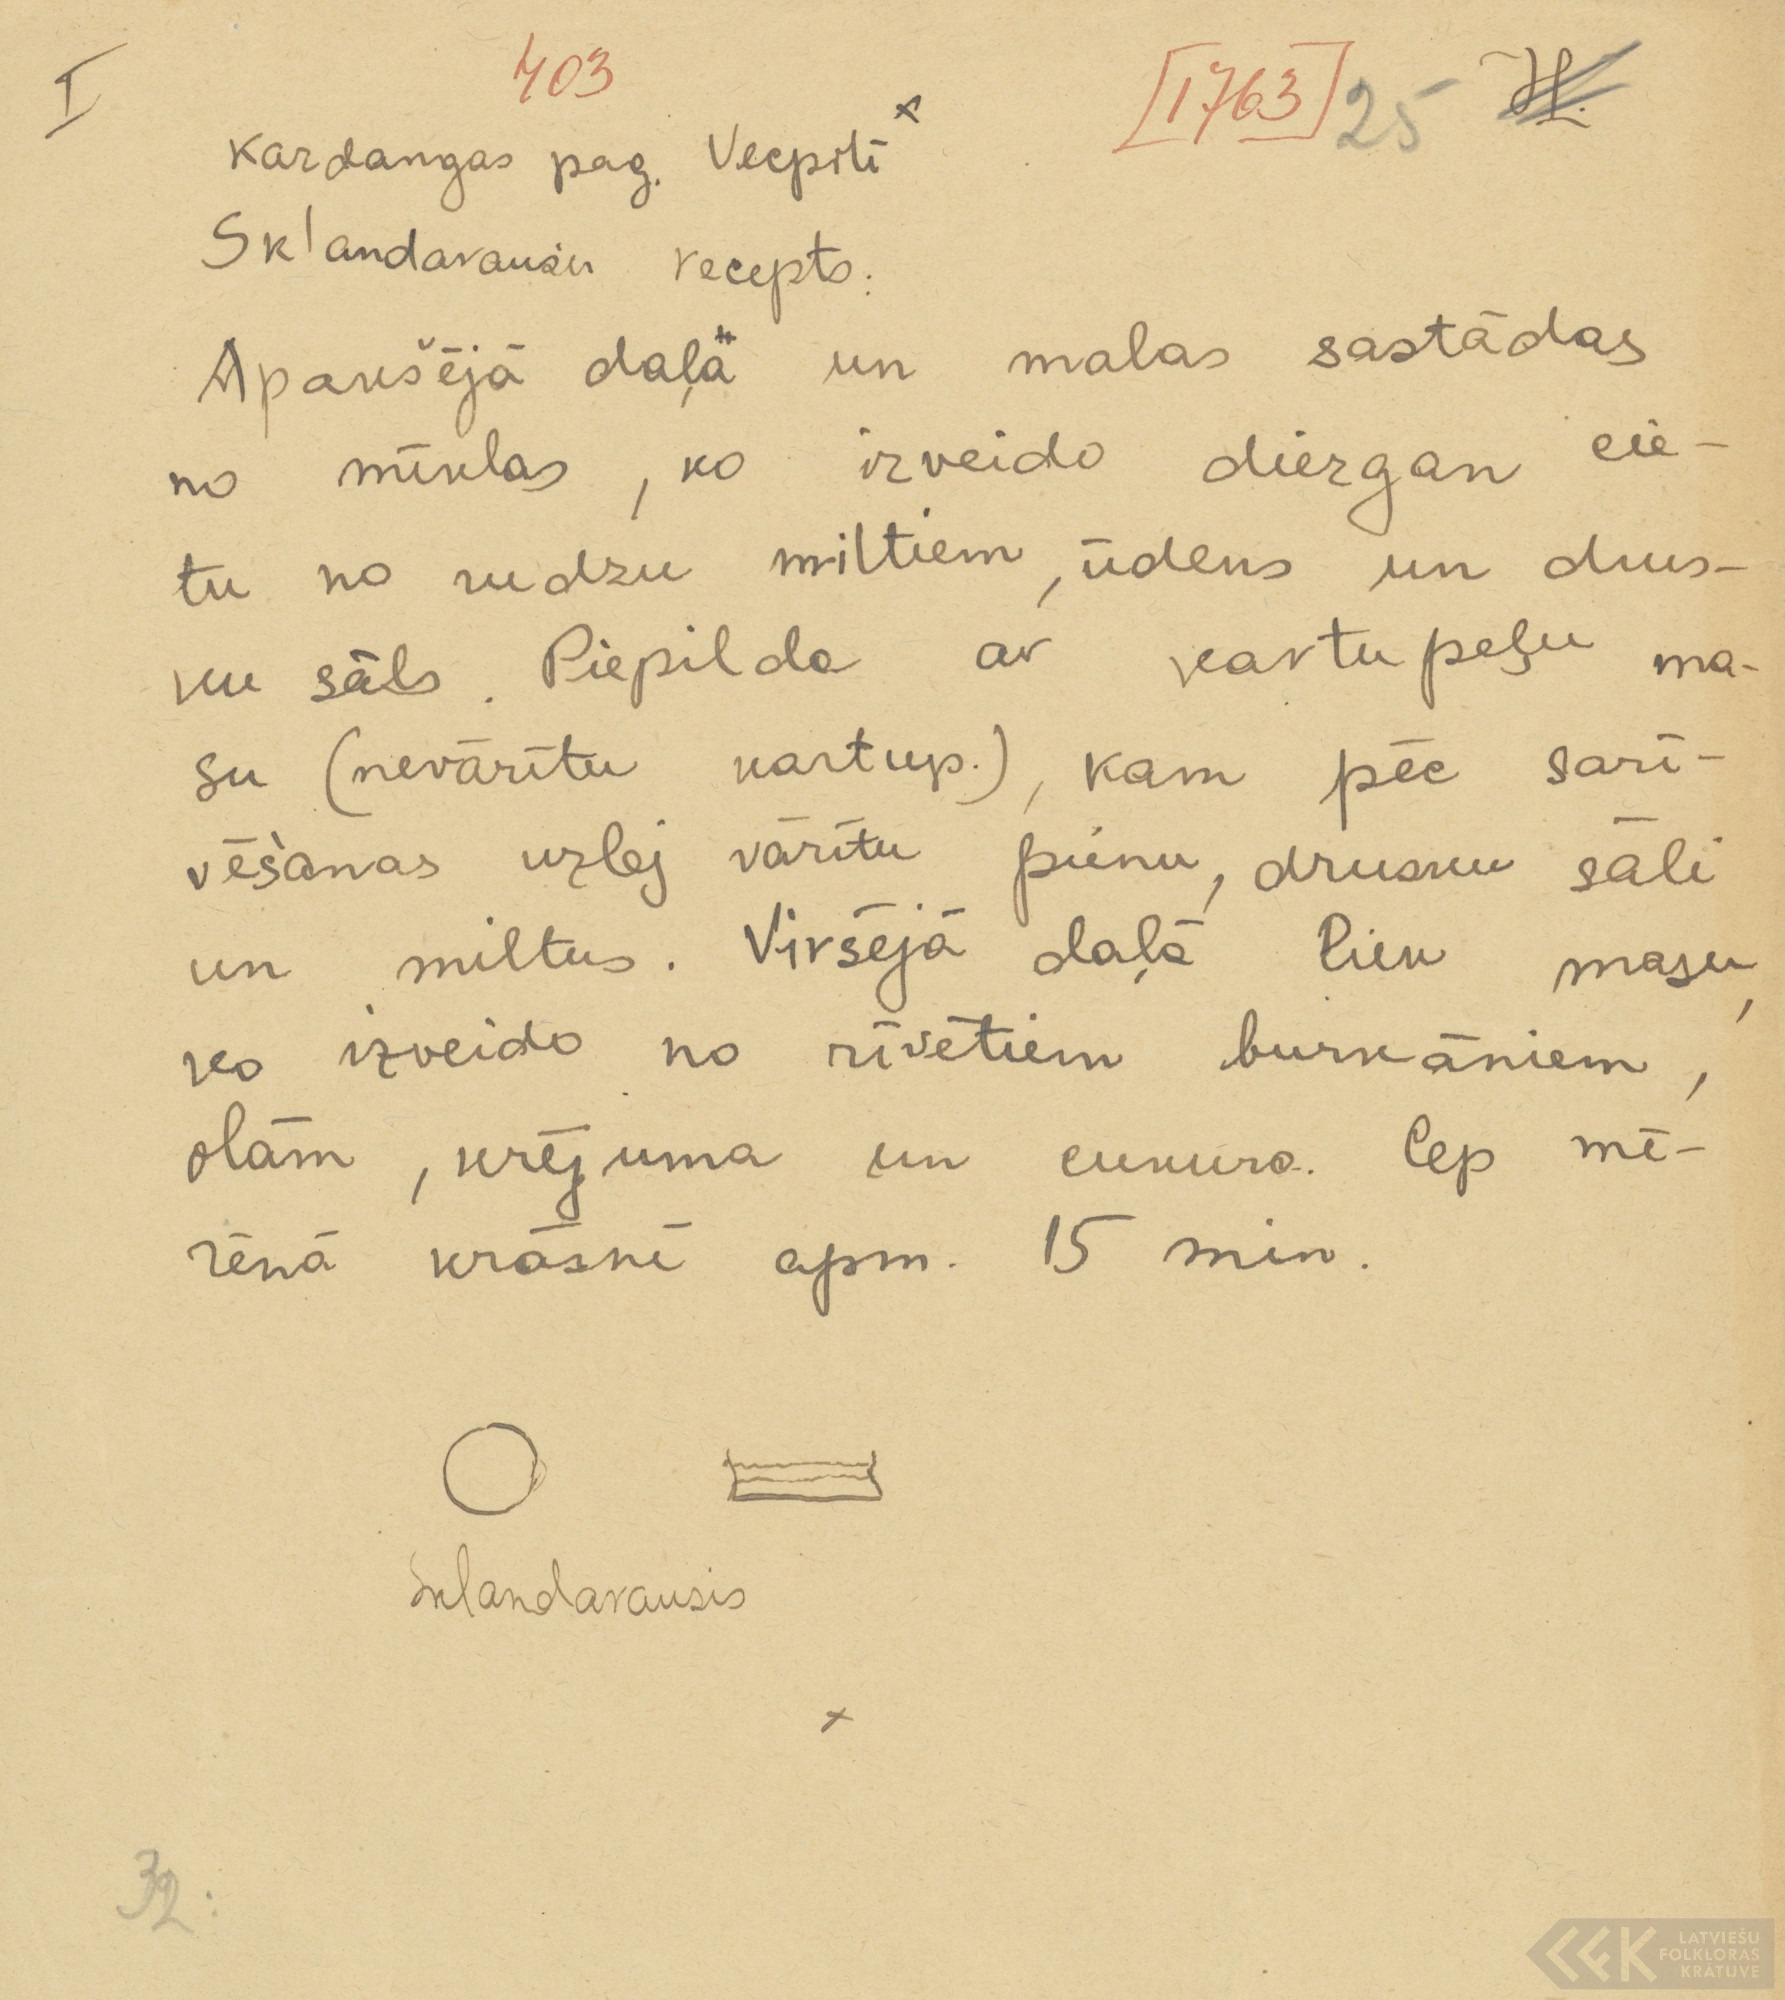 I 403 [1763] 25
Kardangas pag. Vecpilī x
Sklandarausu recepts:
Apakšējā daļā un malas sastādas
no mīklas, ko izveido diezgan cie-
tu no rudzu miltiem, ūdens un drus-
ku sāls. Piepilda ar kartupeļu ma-
su (nevārītu kartup.), kam pēc sarī-
vēšanas uzlej vārītu pienu, drusku sāli
un miltus. Virsējā daļā liek masu,
ko izveido no rīvētiem burkāniem,
olām, krējuma un cukura. Cep mē-
rēnā krāsnē apm. 15 min.
Sklandarausis
x
32:
LATVIEŠU
FOLKLORAS
KRĀTUVE